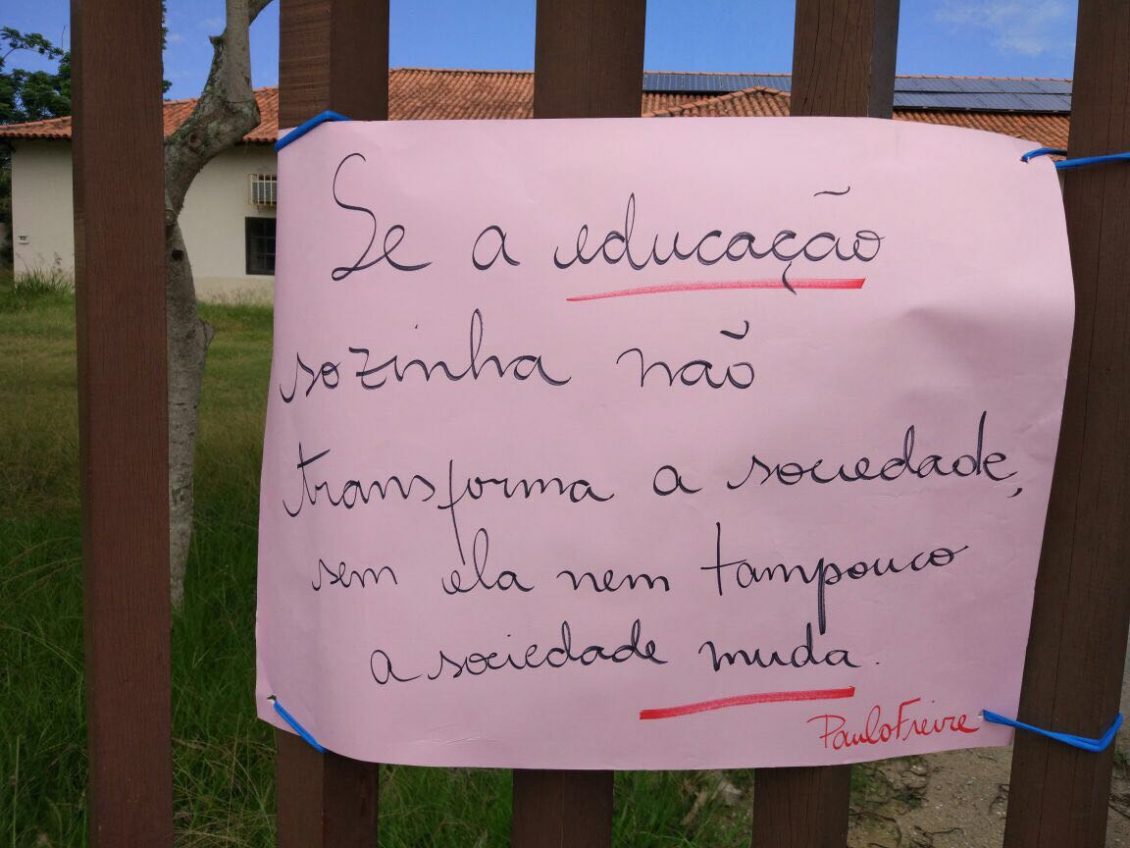 Se a educação
sozinha não
transforma a sociedade,
sem ela nem tampouco
a sociedade muda.
Paulo Freire